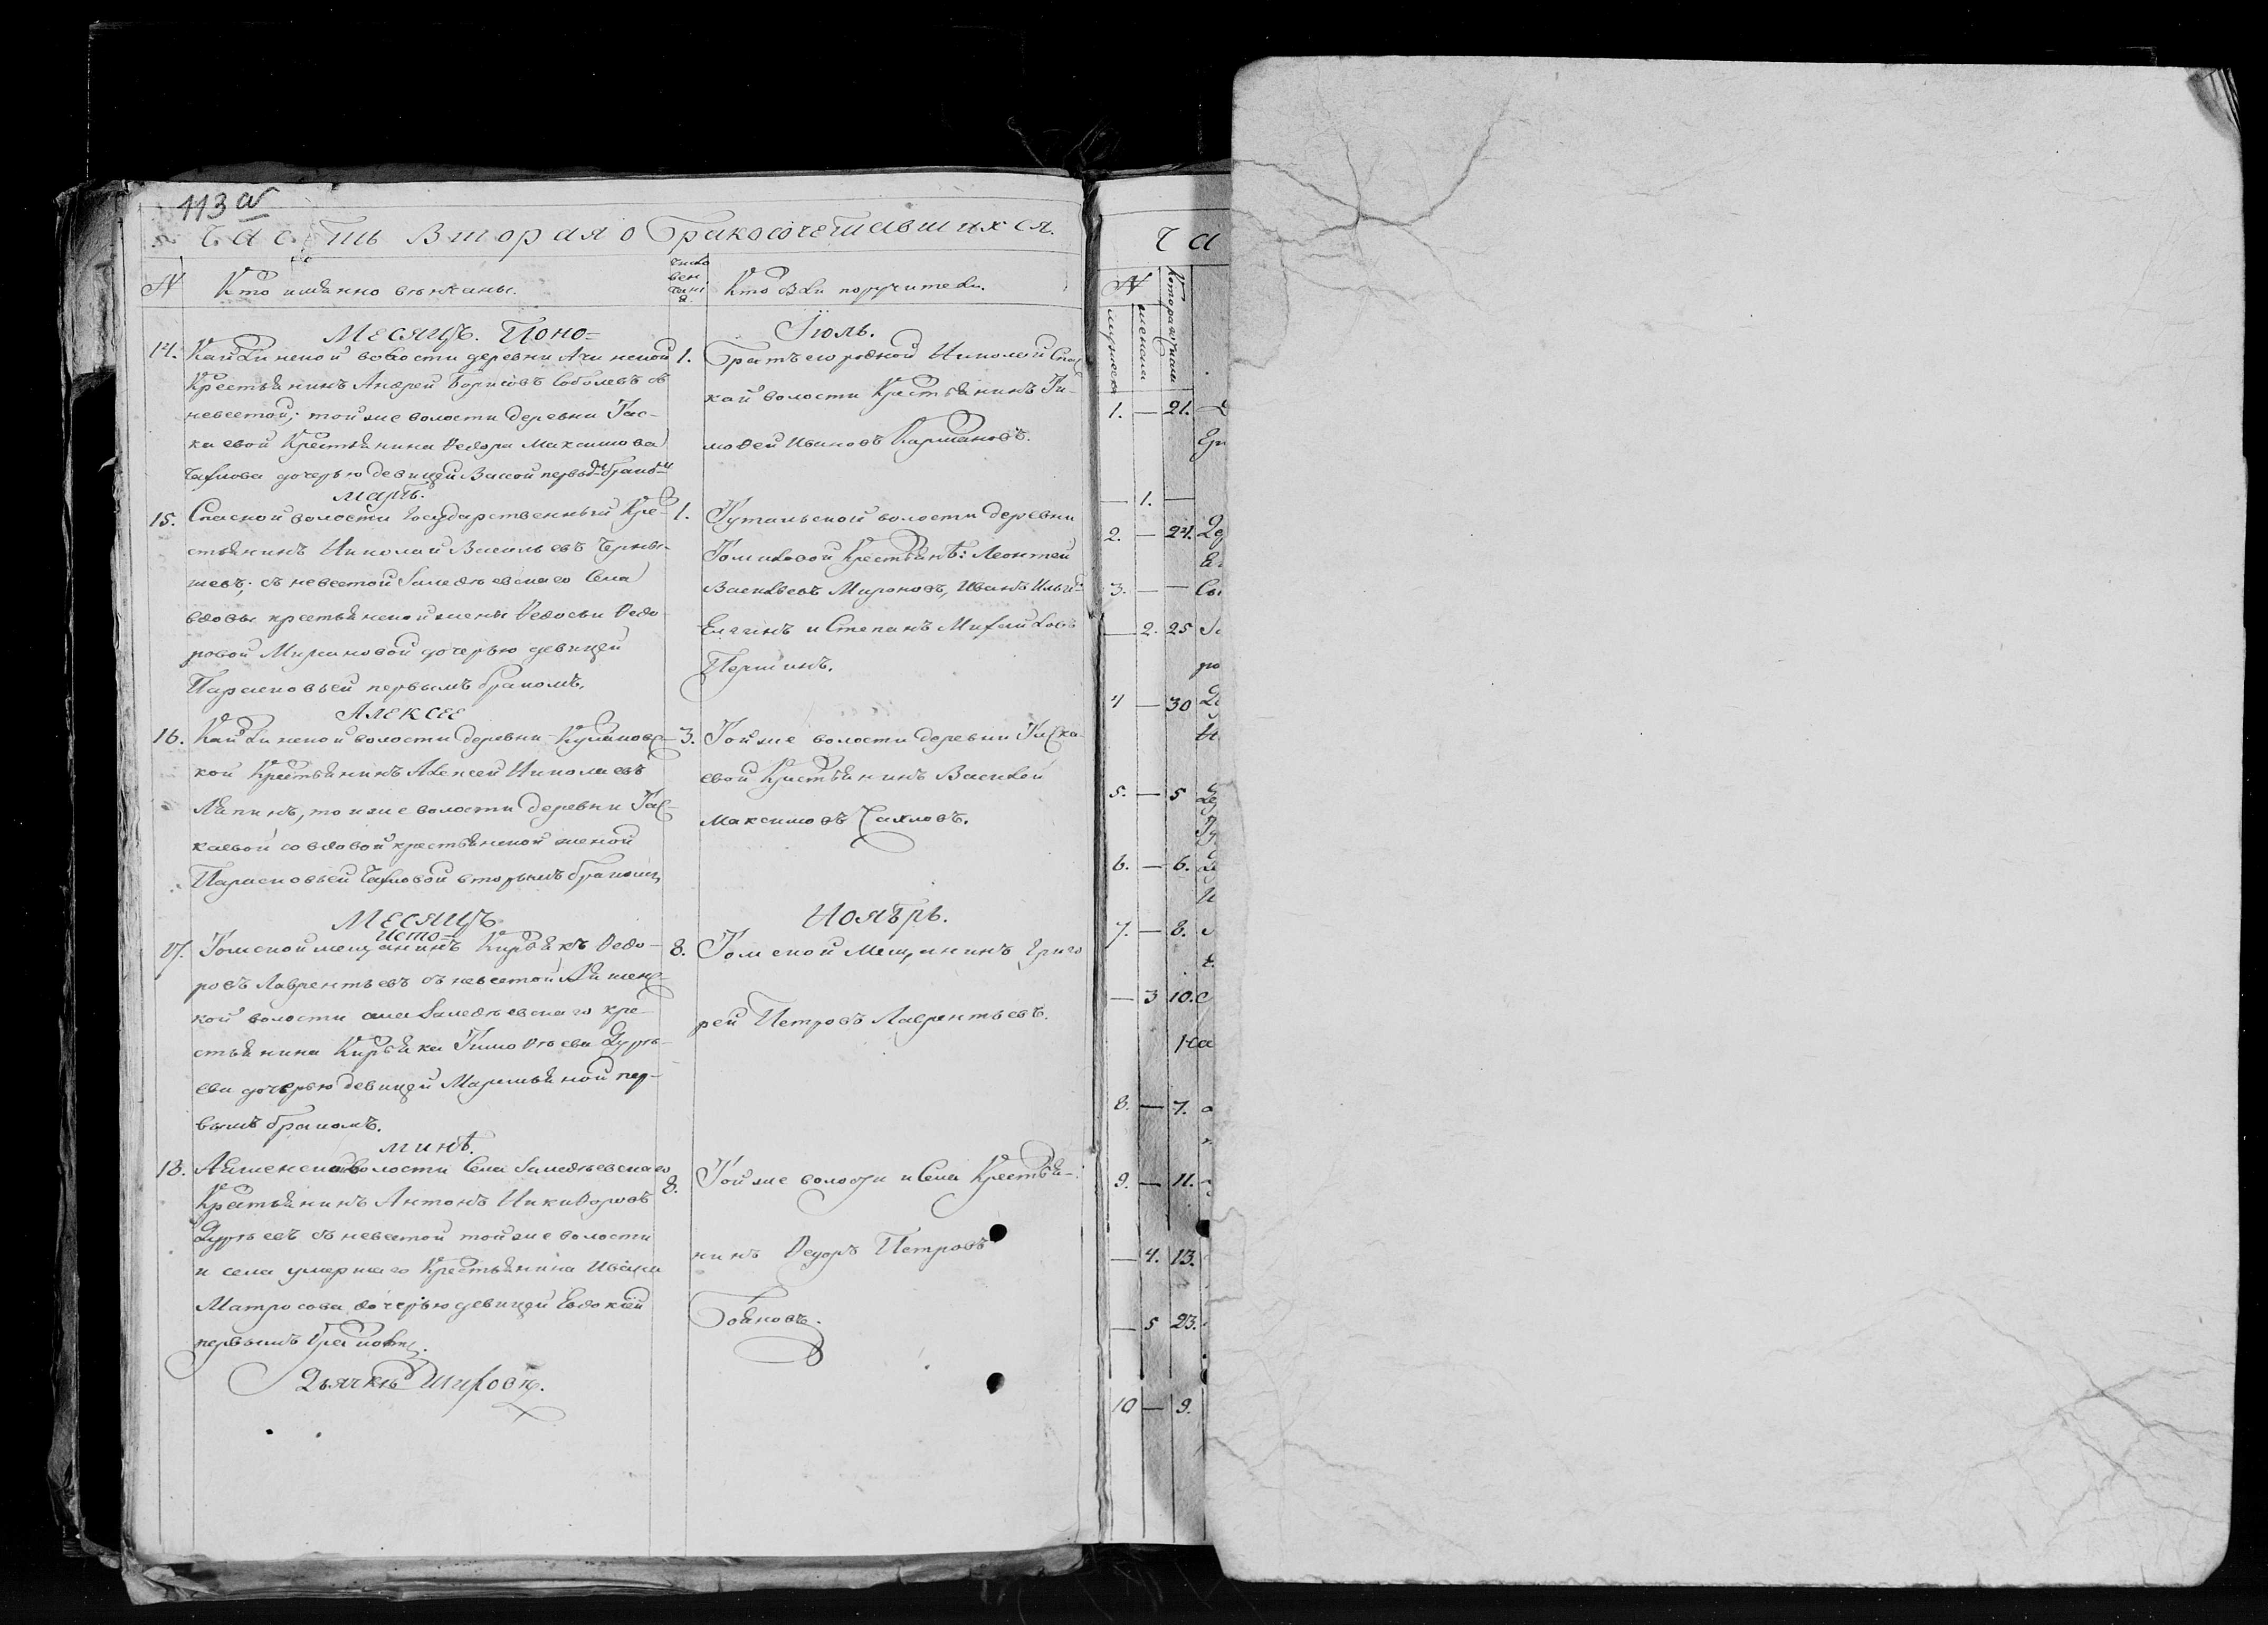 113 а
Часть Вторая о Бракосочетавшихся.
N
Кто имянно венчаны.
число вен чані я
Кто были поручители.
Месяцъ. Поно=
Іюль.
14. Кайлинской волости деревни Ачинской
Крестьянинъ Андрей Борисовъ Соболевъ съ
невестой; тойже волости деревни Тас-
каевой Крестьянина Ѳедора Максимова
Чахлова дочерью девицей Васой первымъ бракомъ
1. Братъ его родной Николай Спас
кай волости Крестьянинъ Ти-
мофей Ивановъ Кармановъ.
Марь.
15. Спаской волости Государственный Кре-
стьянинъ Николай Васильевъ Черны-
шевъ; съ невестой Саледѣевскаго Села
вдовы крестьянской жены Ѳедосьи Ѳедо-
ровой Мироновой дочерью девицей
Парасковьей первымъ бракомъ.
1. Тутальской волости деревни
Томиловой Крестьянѣ: Леонтей
Васильевъ Мироновъ, Иванъ Ильинъ
Елгинъ и Степанъ Михайловъ
Першинъ.
Алексее
16. Кайлинской волости деревни Кулановс-
кой Крестьянинъ Алексей Николаевъ
Ляпинъ, тойже волости деревни Тас-
каевой со вдовой крестьянской женой
Парасковьей Чахловой вторымъ бракомъ
3. Тойже волости деревни Таска-
евой Крестьянинъ Василей
Максимовъ Чахловъ.
Месяцъ
Исто=
Ноябрь.
17. Томской мещанинъ Кирьякъ Ѳедо-
ровъ Лаврентьевъ съ невестой Аяшенс-
кой волости села Саледѣевскаго кре-
стьянина Кирьяка Тимоѳѣева Дурѣ-
ева дочерью девицей Маримьяной пер-
вымъ бракомъ.
8. Томской Мещанинъ Григо
рей Петровъ Лаврентьевъ.
минѣ.
18. Аяшенской волости Села Саледѣевскаго
Крестьянинъ Антонъ Никифоровъ
Дурѣевъ съ невестой тойже волости
и села умершаго Крестьянина Ивана
Матросова дочерью девицей Евдокіей
первымъ бракомъ.
8. Тойже волости и Села Крестья-
нинъ Ѳедоръ Петровъ
Бояновъ.
Дьячекъ Шиховъ.
Ча
N
мужеска
женска
Котораго числа
1. — 21.
— 1. —
2. — 24.
3. — —
— 2. 25
4 — 30
5. — 5
6. — 6.
7. — 8.
— 3 10.
8. — 7.
9. — 11.
— 4. 13.
— 5 23.
10 — 9.